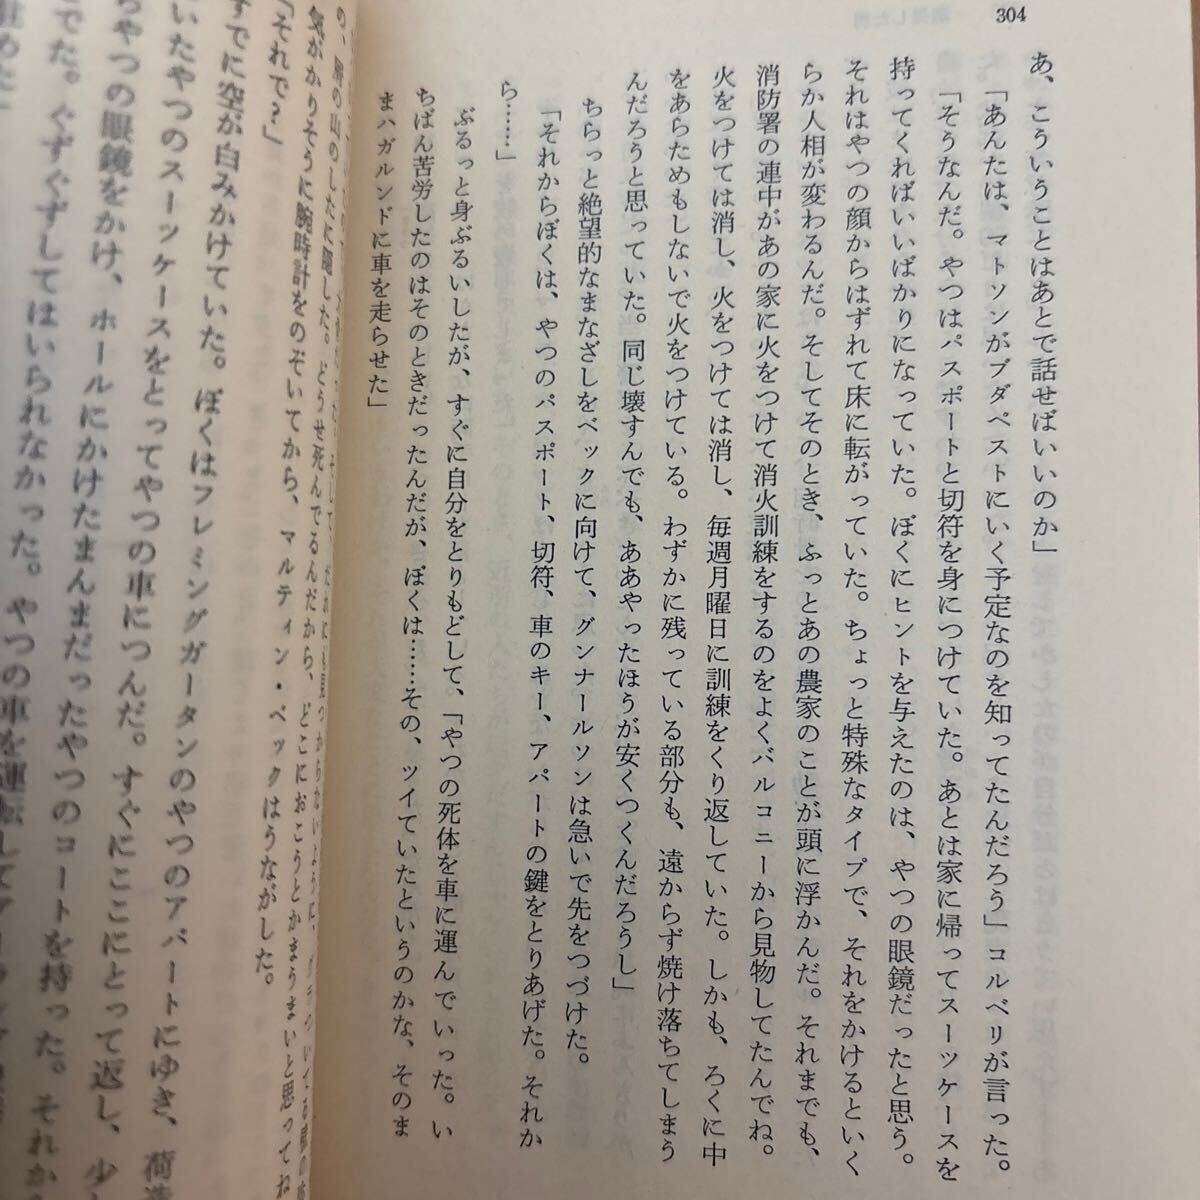 304
あ、こういうことはあとで話せばいいのか」
「あんたは、マトソンがブダペストにいく予定なのを知ってたんだろう」コルベリが言った。
「そうなんだ。やつはパスポートと切符を身につけていた。あとは家に帰ってスーツケースを
持ってくればいいばかりになっていた。ぼくにヒントを与えたのは、やつの眼鏡だったと思う。
それはやつの顔からはずれて床に転がっていた。ちょっと特殊なタイプで、それをかけるといく
らか人相が変わるんだ。そしてそのとき、ふっとあの農家のことが頭に浮かんだ。それまでも、
消防署の連中があの家に火をつけて消火訓練をするのをよくバルコニーから見物してたんでね。
火をつけては消し、火をつけては消し、毎週月曜日に訓練をくり返していた。しかも、ろくに中
をあらためもしないで火をつけている。わずかに残っている部分も、遠からず焼け落ちてしまう
んだろうと思っていた。同じ壊すんでも、ああやったほうが安くつくんだろうし」
ちらっと絶望的なまなざしをベックに向けて、グンナールソンは急いで先をつづけた。
「それからぼくは、やつのパスポート、切符、車のキー、アパートの鍵をとりあげた。それか
ら……」
ぶるっと身ぶるいしたが、すぐに自分をとりもどして、「やつの死体を車に運んでいった。い
ちばん苦労したのはそのときだったんだが、ぼくは……その、ツイていたというのかな、そのま
まハガルンドに車を走らせた」
気がかりそうに腕時計をのぞいてから、マルティン・ベックはうながした。
「それで？」
すでに空が白みかけていた。ぼくはフレミングガータンのやつのアパートにゆき、荷造
いたやつのスーツケースをとってやつの車につんだ。すぐにここにとって返し、少し
やつの眼鏡をかけ、ホールにかけたまんまだったやつのコートを持った。それか
でた。ぐずぐずしてはいられなかった。やつの車を運転して